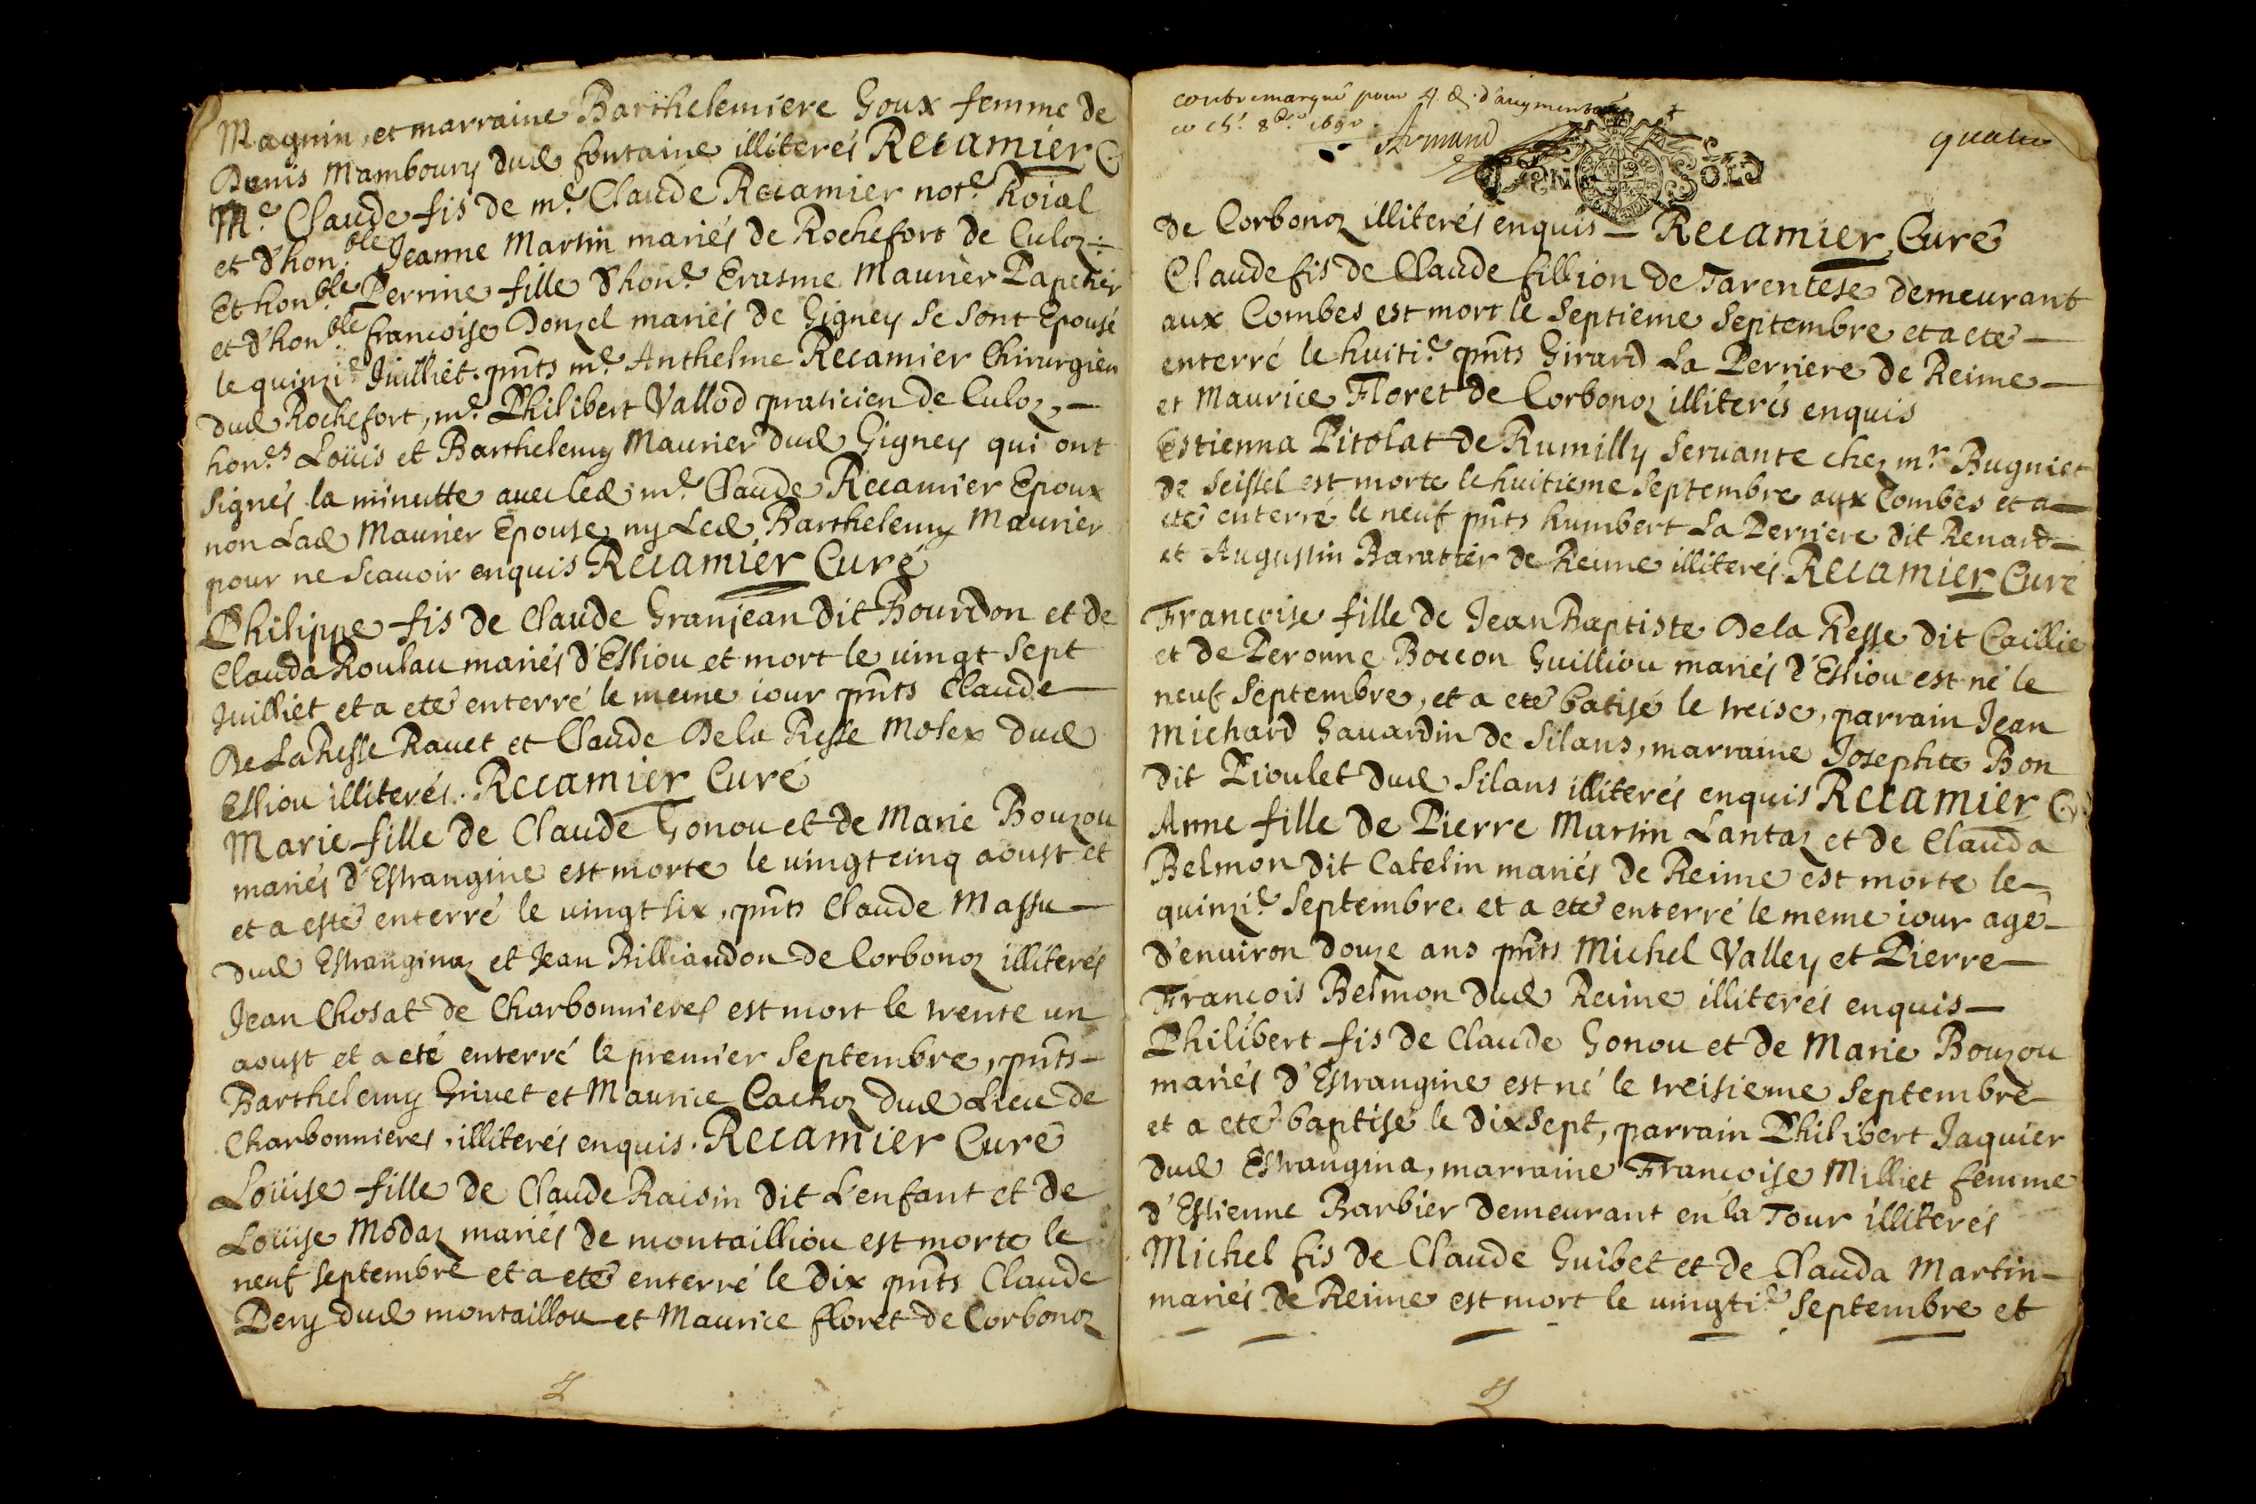 Magnin, et marraine Barthelemiere Goux femme de
Denis Mamboury dud fontaine illiterés Recamier C
Me Claude fis de me Claude Recamier note Roial
et d'honble Jeanne Martin mariés de Rochefort de Culoz
Et honble Perrine fille d'hone Erasme Maurier Papetier
et d'honble francoise Donzel mariés de Gigney se sont Epousé
le quinzie Juilliet pnts me Anthelme Recamier Chirurgien
dud Rochefort, me Philibert Vallod praticien de Culoz,
hones Loüis et Barthelemy Maurier dud Gigney qui ont
signés la minutte avec led me Claude Recamier Epoux
non Lad Maurier Epouse ny Led Barthelemy Maurier
pour ne scavoir enquis Recamier Curé
Philippe fis de Claude Granjean dit Bourdon et de
Clauda Roulau mariés d'Essiou et mort le vingt sept
Juilliet et a eté enterré le meme iour pnts Claude
De La Resse Ravet et Claude De la Resse Molex dud
Essiou illiterés. Recamier Curé
Marie fille de Claude Gonou et de Marie Bouzou
mariés d'Estrangine est morte le vingt cinq aoust et
et a esté enterré le vingt six, pnts Claude Massu
dud Estranginaz et Jean Billiandon de Corbonoz illiterés
Jean Chosat de Charbonnieres est mort le trente un
aoust et a eté enterré le premier septembre, pnts
Barthelemy Grivet et Maurice Cachoz dud Lieu de
Charbonnieres, illiterés enquis. Recamier Curé
Loüise fille de Claude Raisin dit L'enfant et de
Loüise Modaz mariés de montailliou est morte le
neuf septembre et a eté enterré le dix pnts Claude
Pery dud montaillou et Maurice floret de Corbonoz
contremarqué pour 4 d. d'augmentation
8bre 1690
Armand
quatre
GEN SOLS
de Corbonoz illiterés enquis Recamier Curé
Claude fis de Claude fillion de Tarentese demeurant
aux Combes est mort le septieme septembre et a eté
enterré le huitie pnts Girard La Perriere de Reime
et Maurice Floret de Corbonoz illiterés enquis
Estienna Pitolat de Rumilly servante chez mr Bugniet
de seissel est morte le huitieme septembre aux Combes et a
eté enterré le neuf pnts humbert La Perriere dit Renard
et Augustin Baratier de Reime illiterés Recamier Curé
Françoise fille de Jean Baptiste De la Resse dit Caillie
et de Peronne Boccon Guilliou mariés d'Essiou est né le
neuf septembre, et a eté batisé le treise, parrain Jean
Michard Gavardin de silans, marraine Josephte Bon
dit Pioulet dud silans illiterés enquis Recamier C
Anne fille de Pierre Martin Lantaz et de Clauda
Belmon dit Catelin mariés de Reime est morte le
quinzie septembre et a eté enterré le meme iour agé
d'environ douze ans pnts Michel Valley et Pierre
François Belmon dud Reime illiterés enquis
Philibert fis de Claude Gonou et de Marie Bouzou
mariés d'Estrangine est né le treisieme septembre
et a eté baptisé le dix sept, parrain Philibert Jaquier
dud Estrangina, marraine Françoise Milliet femme
d'Estienne Barbier demeurant en la Tour illiterés
Michel fis de Claude Guibet et de Clauda Martin
mariés de Reime est mort le vingtie septembre et